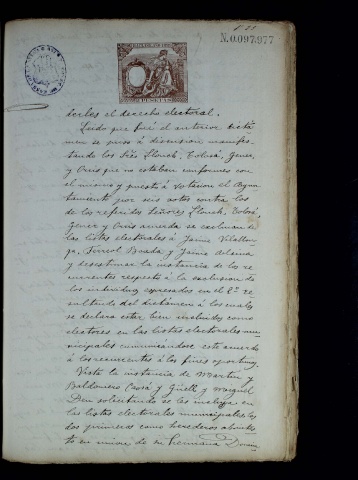 N.0.097.977
tarles el derecho electoral.
Leido que fué el anterior dictá
men se puso á discusion manifes
tando los Sres Llouch, Tolrá, Gener,
y Oriis que no estaban conformes con
el mismo y puesto á votacion el Ayun
tamiento por seis votos contra los
de los referidos Señores Llouch, Tolrá,
Gener y Oriis acuerda se excluyan de
las listas electorales á Jaime Vilallon
ga, Ferreol Boada y Jaime
y desestimar la instancia de los re
currentes respecto á la exclusion de
los individuos expresados en el 2º re
sultando del dictámen á los cuales
se declara estar bien incluidos como
electores en las listas electorales mu
nicipales comunicandose este acuerdo
á los recurrentes á los fines oportunos.
Vista la instancia de Martin y
Baldomero Casá y Güell y Miguel
Deu solicitando se les incluya en
las listas electorales municipales los
dos primeros como herederos abintes
tato en union de su hermana